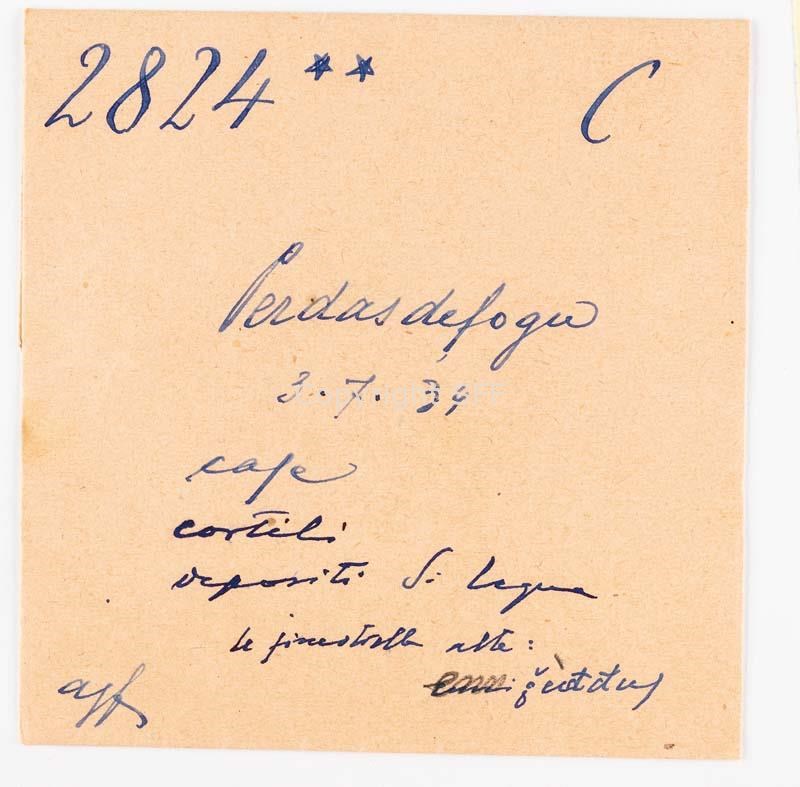 2824 ** C
Perdasdefogu
3.7.34
case
cortili
depositi di legna
le finestrelle alte:
asf